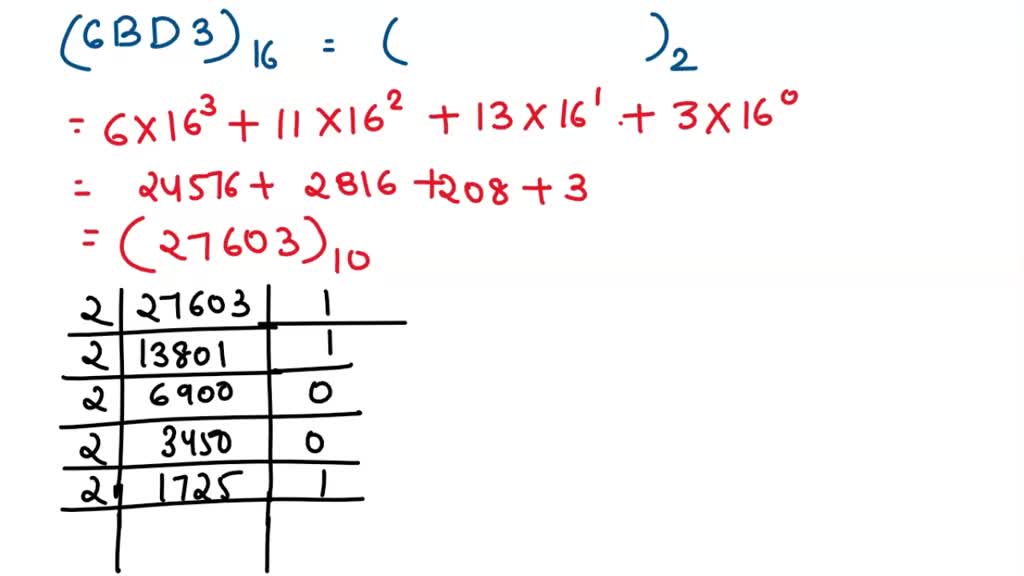 (6BD3)₁₆ = ( )₂
= 6×16³ + 11×16² + 13×16¹ + 3×16⁰
= 24576 + 2816 + 208 + 3
= (27603)₁₀
2 | 27603 | 1
2 | 13801 | 1
2 | 6900 | 0
2 | 3450 | 0
2 | 1725 | 1